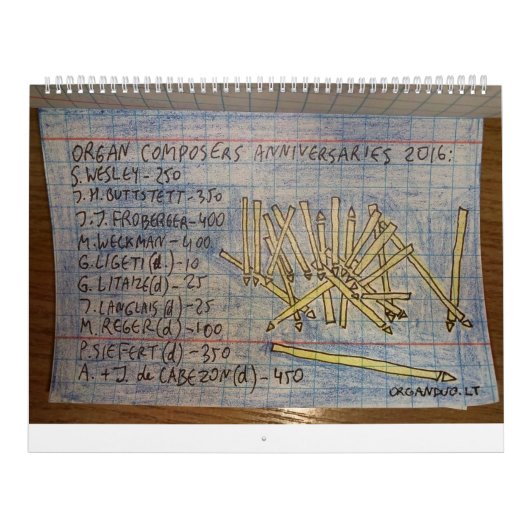 ORGAN COMPOSERS ANNIVERSARIES 2016:
S. WESLEY - 250
J. H. BUTTSTETT - 350
J. J. FROBERGER - 400
M. WECKMAN - 400
G. LIGETI (d.) - 10
G. LITAIZE (d) - 25
J. LANGLAIS (d) - 25
M. REGER (d) - 100
P. SIEFERT (d) - 350
A. + J. de CABEZON (d) - 450
ORGANDUO.LT